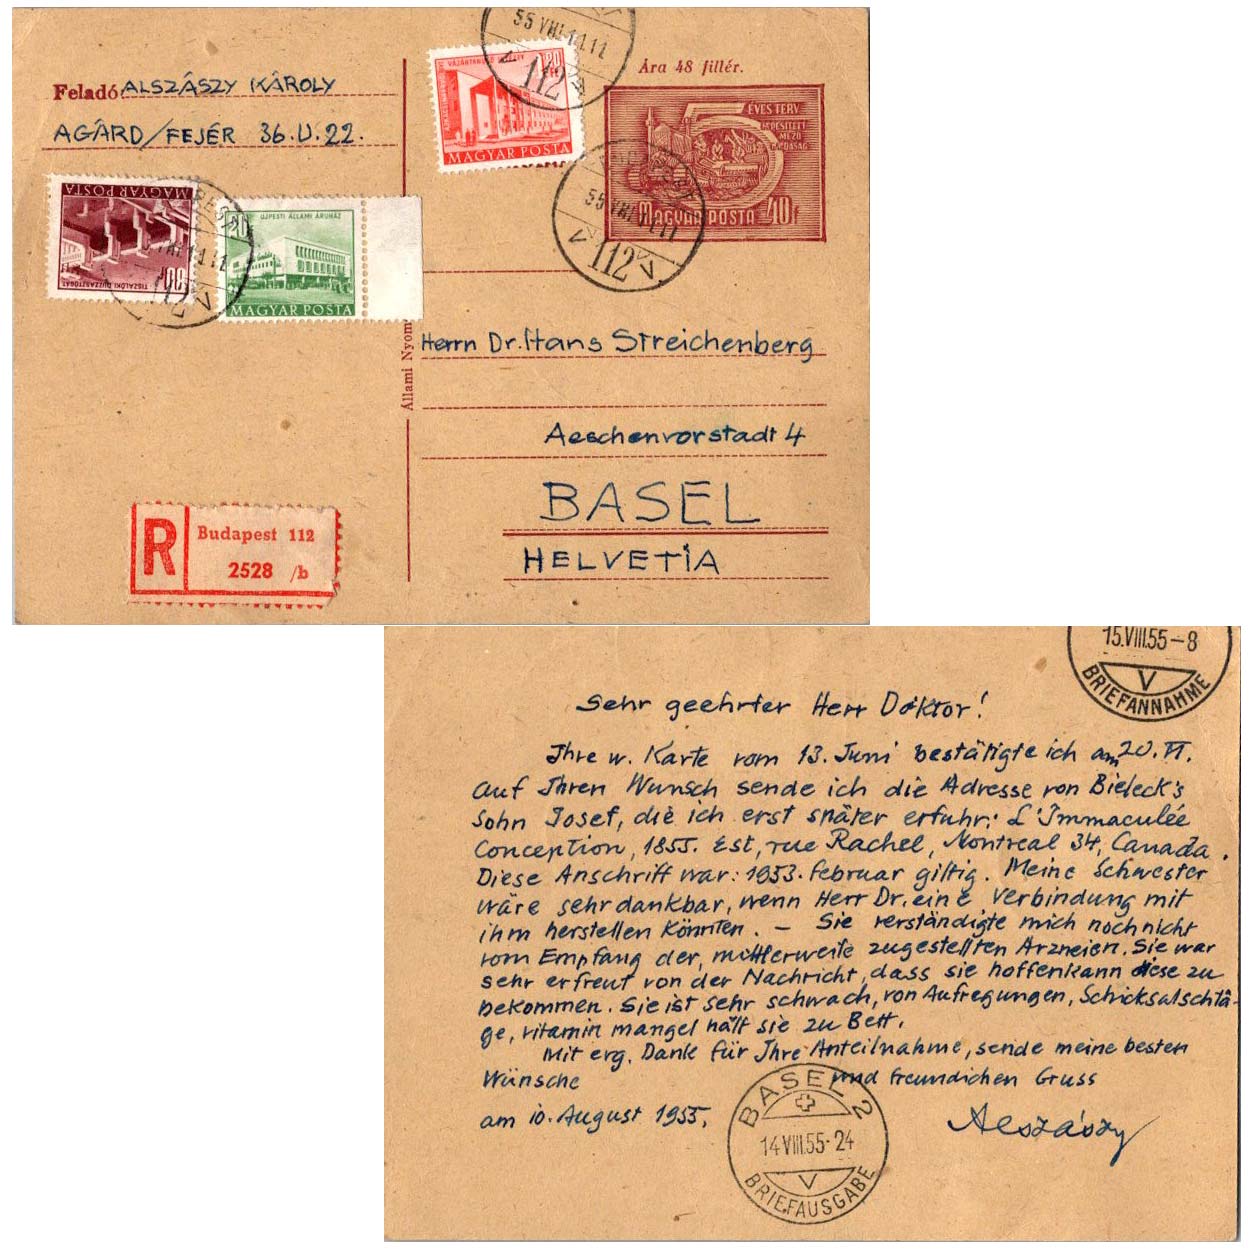 Feladó: ALSZÁSZY KÁROLY
AGÁRD/FEJÉR 36.U.22.
55 VIII 11 11
112
VÁZÁNYÁNOSI
20
MAGYAR POSTA
Ára 48 fillér.
5 ÉVES TERV
GÉPESÍTETT
MEZŐ
GAZDASÁG
MAGYAR POSTA 40f
55 VIII 11 11
112
MAGYAR POSTA
TISZALÖKI DUZZASZTÓGÁT
112
20
ÚJPESTI ÁLLAMI ÁRUHÁZ
MAGYAR POSTA
Állami Nyom
Herrn Dr. Hans Streichenberg
Aeschenvorstadt 4
BASEL
HELVETIA
R
Budapest 112
2528 /b
15.VIII.55-8
V
BRIEFANNAHME
Sehr geehrter Herr Doktor!
Ihre w. Karte vom 13. Juni bestätigte ich am 20. VI.
Auf Ihren Wunsch sende ich die Adresse von Bieleck's
Sohn Josef, die ich erst später erfuhr: L'Immaculée
Conception, 1855. Est, rue Rachel, Montreal 34, Canada.
Diese Anschrift war: 1953. februar giltig. Meine Schwester
wäre sehr dankbar, wenn Herr Dr. eine Verbindung mit
ihm herstellen könnten. – Sie verständigte mich noch nicht
vom Empfang der, mittlerweile zugestellten Arzneien. Sie war
sehr erfreut von der Nachricht, dass sie hoffen kann diese zu
bekommen. Sie ist sehr schwach, von Aufregungen, Schicksalschlä-
ge, vitamin mangel hält sie zu Bett.
Mit erg. Dank für Ihre Anteilnahme, sende meine besten
Wünsche und freundichen Gruss
am 10. August 1955.
Alszászy
BASEL 2
14.VIII.55-24
V
BRIEFAUSGABE